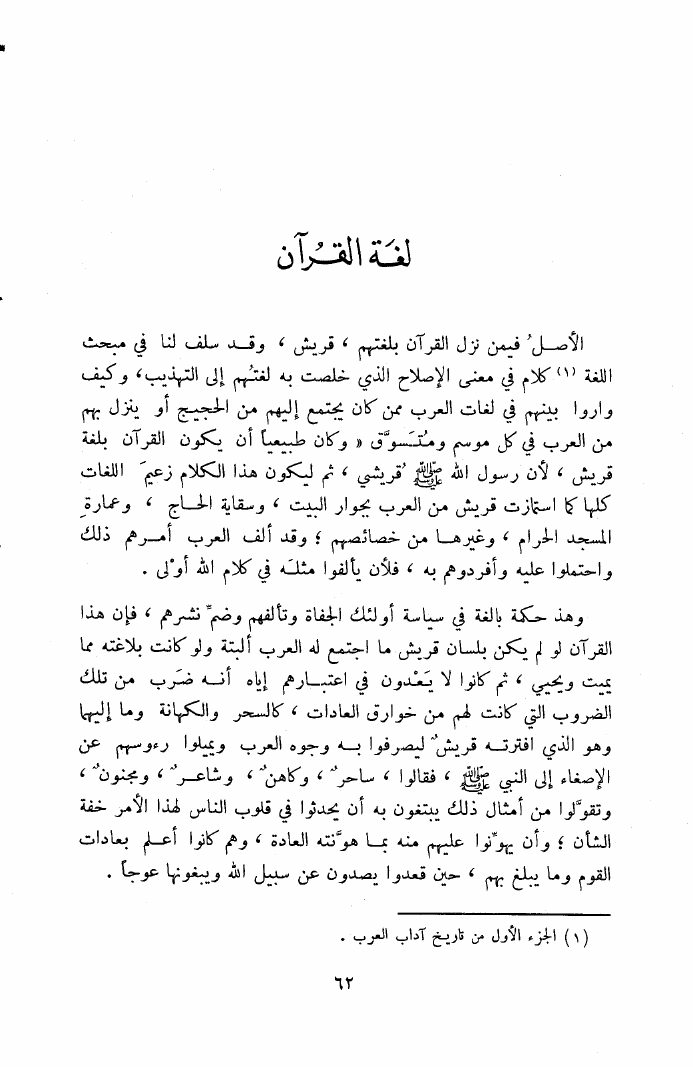 لغة القرآن
الأصلُ فيمن نزل القرآن بلغتهم ، قريش ، وقد سلف لنا في مبحث
اللغة (١) كلام في معنى الإصلاح الذي خلصت به لغتُهم إلى التهذيب، وكيف
واروا بينهم في لغات العرب ممن كان يجتمع إليهم من الحجيج أو ينزل بهم
من العرب في كل موسم ومُتَسوَّق « وكان طبيعياً أن يكون القرآن بلغة
قريش ، لأن رسول الله ﷺ قُرشي ، ثم ليكون هذا الكلام زعيمَ اللغات
كلها كما استمازت قريش من العرب بجوار البيت ، وسقاية الحاج ، وعمارةِ
المسجد الحرام ، وغيرها من خصائصهم ؛ وقد ألف العرب أمرهم ذلك
واحتملوا عليه وأفردوهم به ، فلأن يألفوا مثلَه في كلام الله أوْلى .
وهذ حكمة بالغة في سياسة أولئك الجفاة وتألفهم وضمِّ نشرهم ، فإن هذا
القرآن لو لم يكن بلسان قريش ما اجتمع له العرب ألبتة ولو كانت بلاغته مما
يميت ويحيي ، ثم كانوا لا يَعْدون في اعتبارهم إياه أنه ضَرب من تلك
الضروب التي كانت لهم من خوارق العادات ، كالسحر والكهانة وما إليها
وهو الذي افترته قريشٌ ليصرفوا به وجوه العرب ويميلوا رءوسهم عن
الإصغاء إلى النبي ﷺ ، فقالوا ، ساحرٌ ، وكاهنٌ ، وشاعرٌ ، ومجنونٌ ،
وتقوَّلوا من أمثال ذلك يبتغون به أن يحدثوا في قلوب الناس لهذا الأمر خفة
الشأن ؛ وأن يهوِّنوا عليهم منه بما هوَّنته العادة ، وهم كانوا أعلم بعادات
القوم وما يبلغ بهم ، حين قعدوا يصدون عن سبيل الله ويبغونها عوجاً .
(١) الجزء الأول من تاريخ آداب العرب .
٦٢